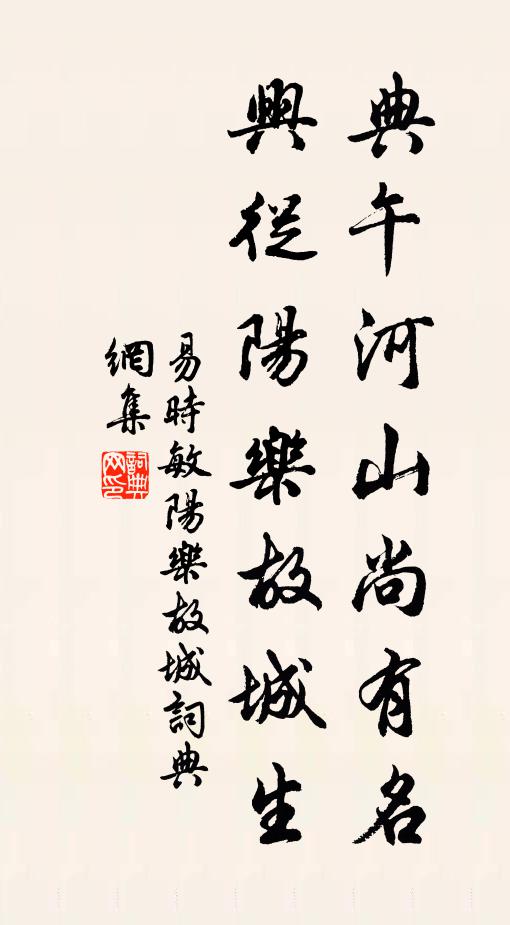 典午河山尚有名
興從陽樂故城生
易時敏陽樂故城詞典
網集
詞典
网印